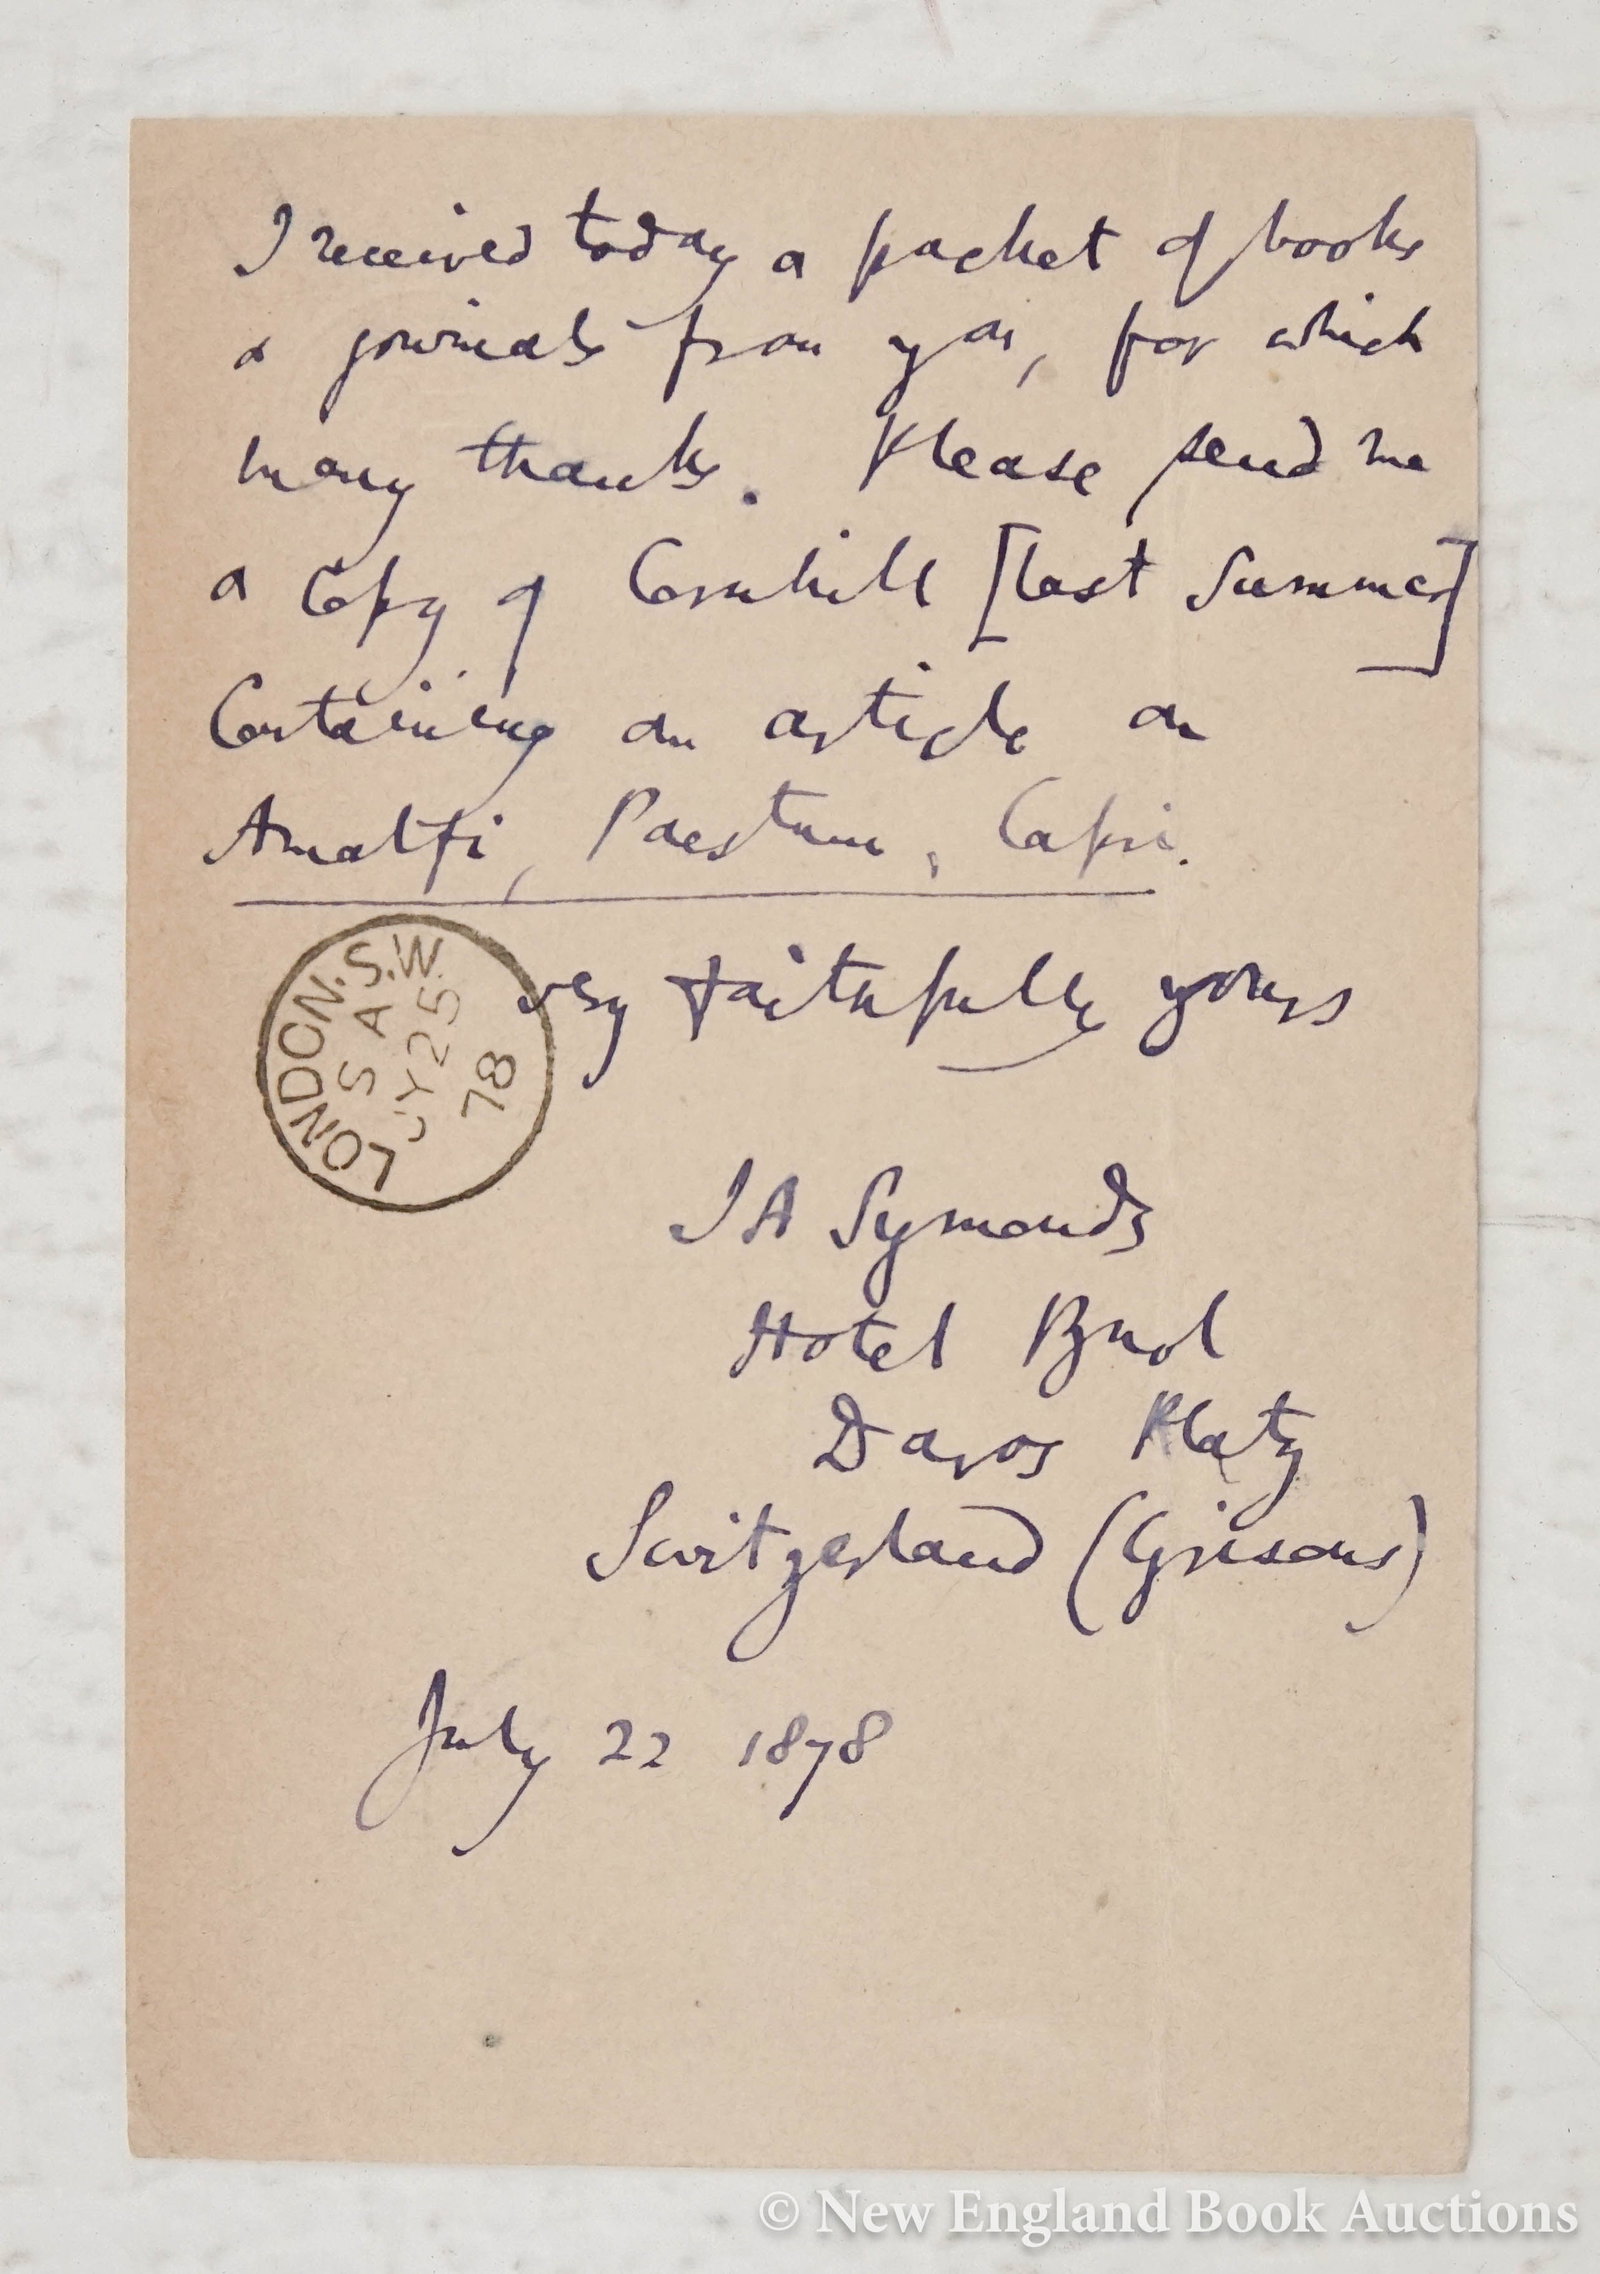 I received today a packet of books
& journals from you, for which
many thanks. Please send me
a Copy of Cornhill [last Summer]
Containing an article on
Amalfi, Paestum, Capri.
very faithfully yours
LONDON.S.W.
S A
JY 25
78
J A Symonds
Hotel Buol
Davos Platz
Switzerland (Grisons)
July 22 1878
© New England Book Auctions